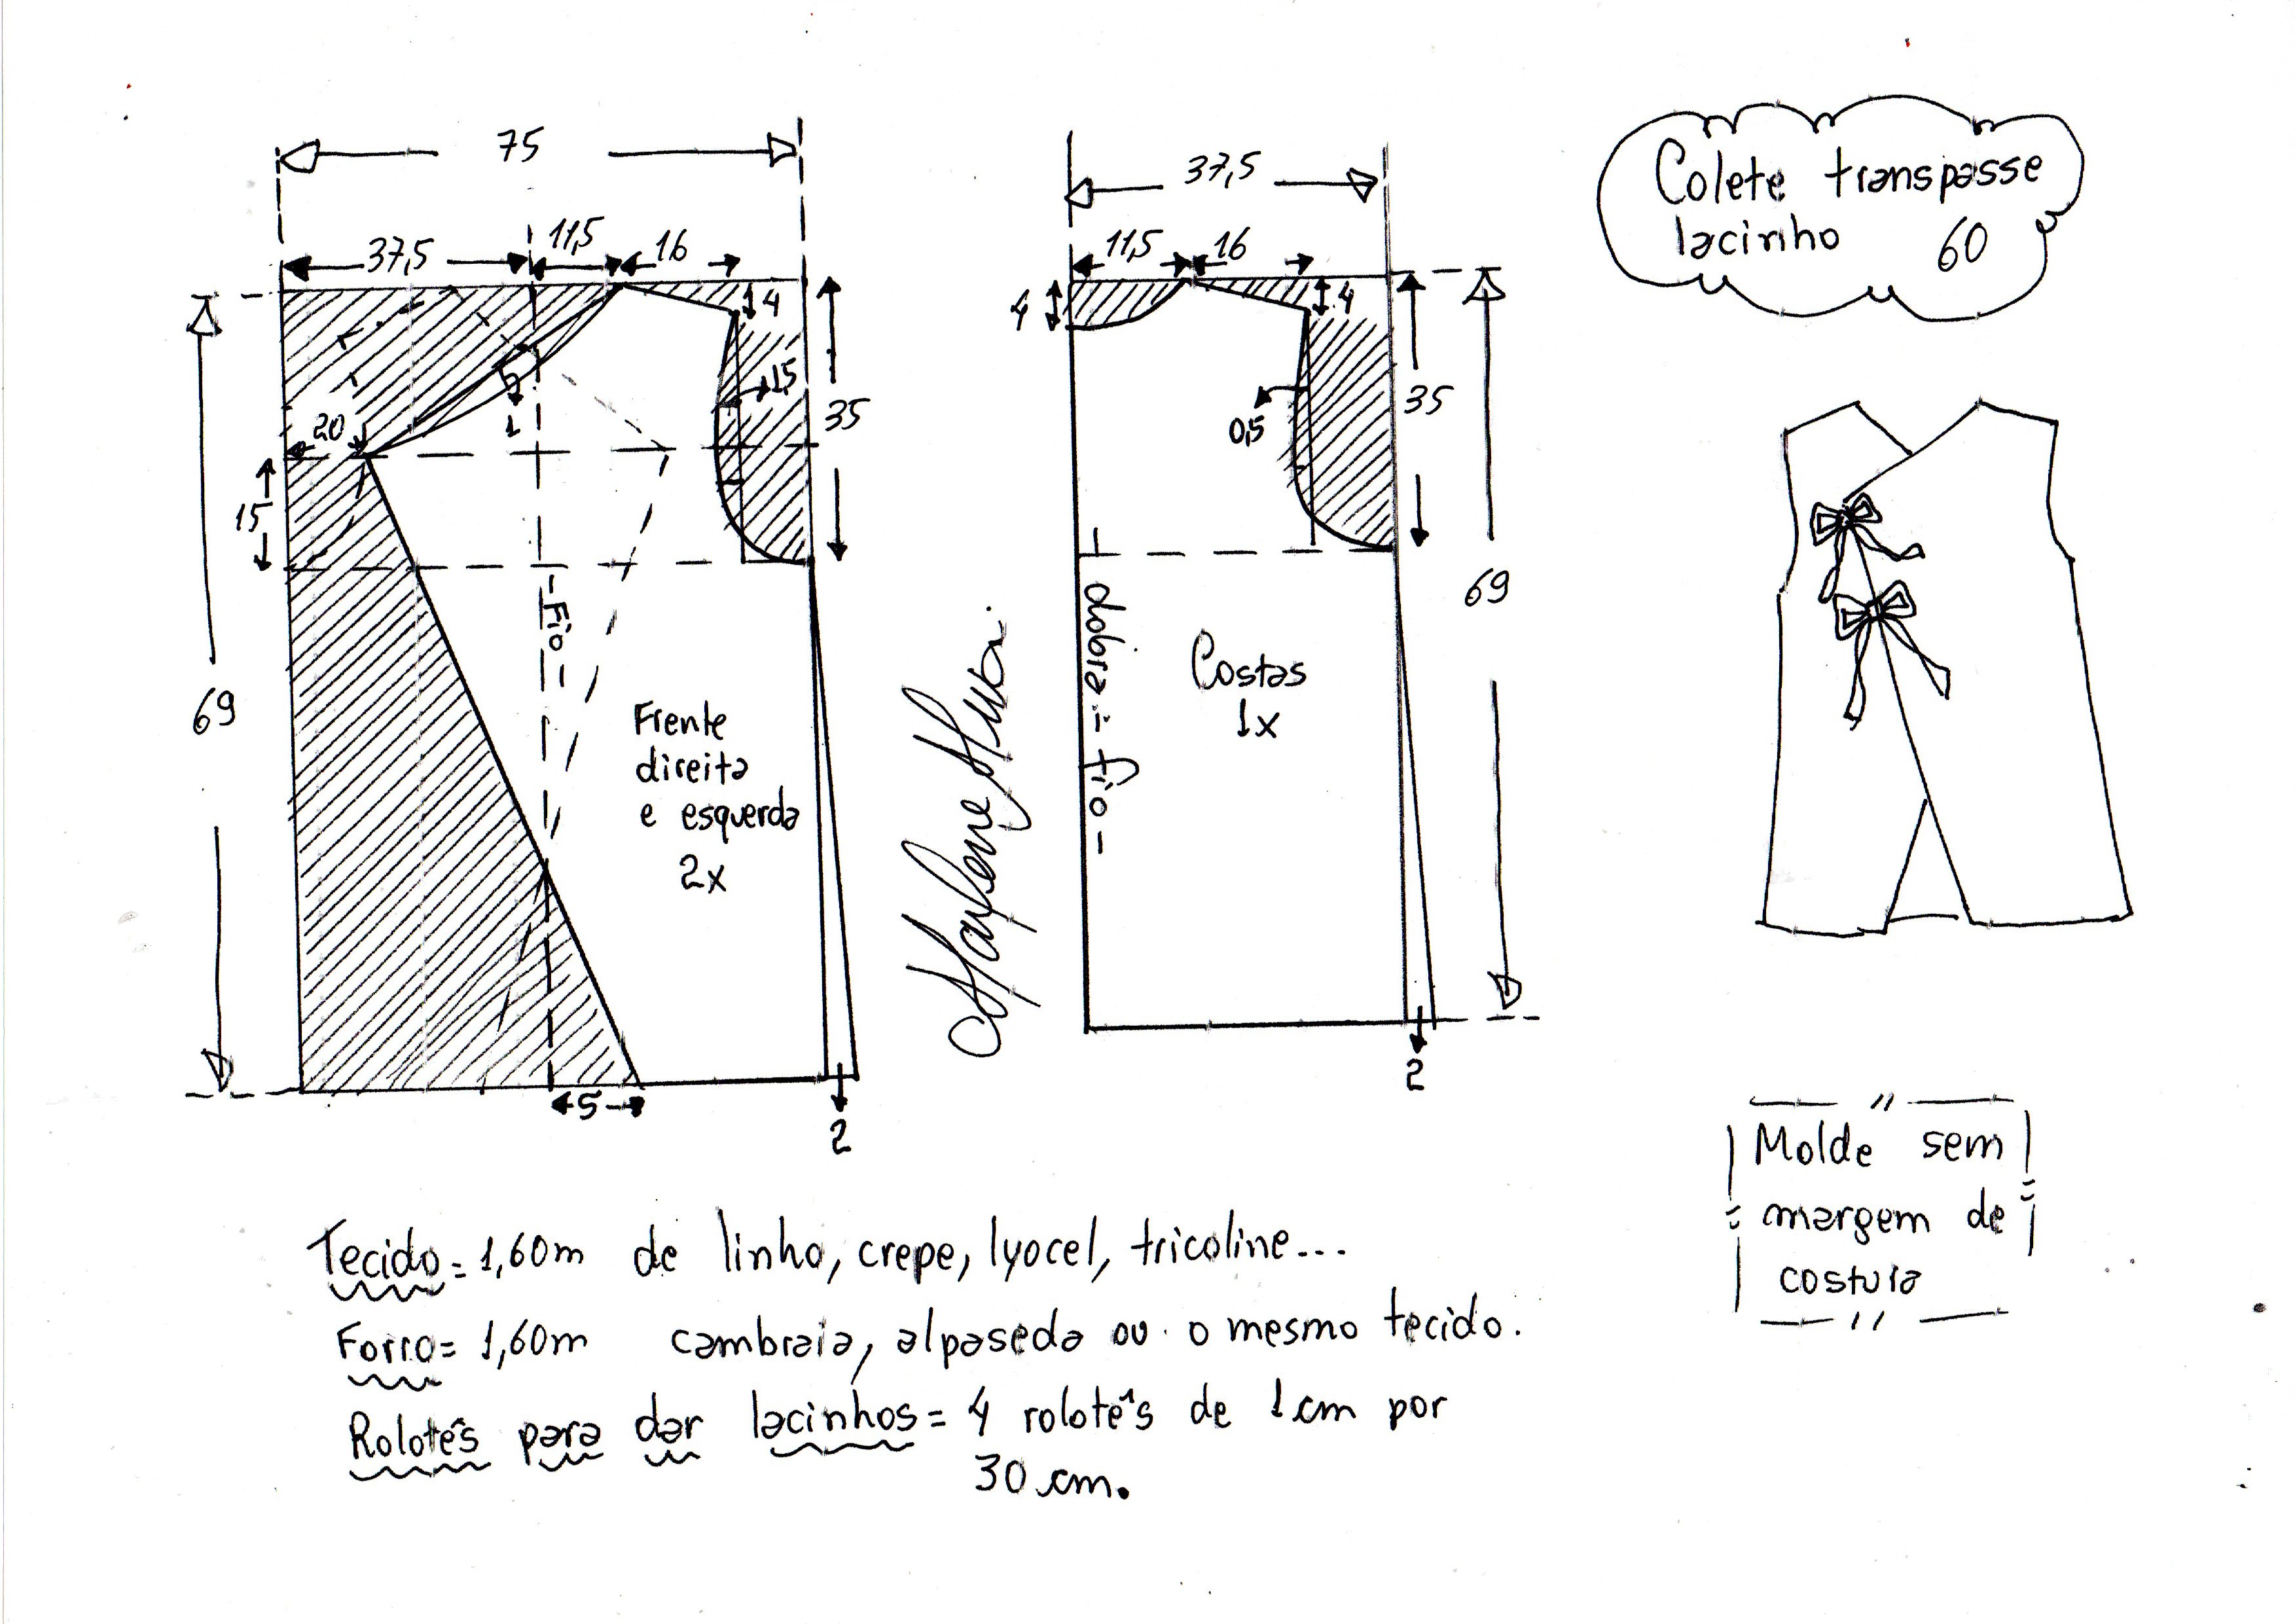 75
37,5
11,5
16
4
1,5
35
20
1
15
69
-Fio-
Frente
direita
e esquerda
2x
5
2
37,5
11,5
16
4
4
0,5
35
69
dobra = fio -
Costas
1x
2
Colete transpasse
lacinho 60
Molde sem
margem de
costura
Tecido = 1,60m de linho, crepe, lyocel, tricoline...
Forro = 1,60m cambraia, alpaseda ou o mesmo tecido.
Rolotês para dar lacinhos = 4 rolotê's de 1cm por
30 cm.